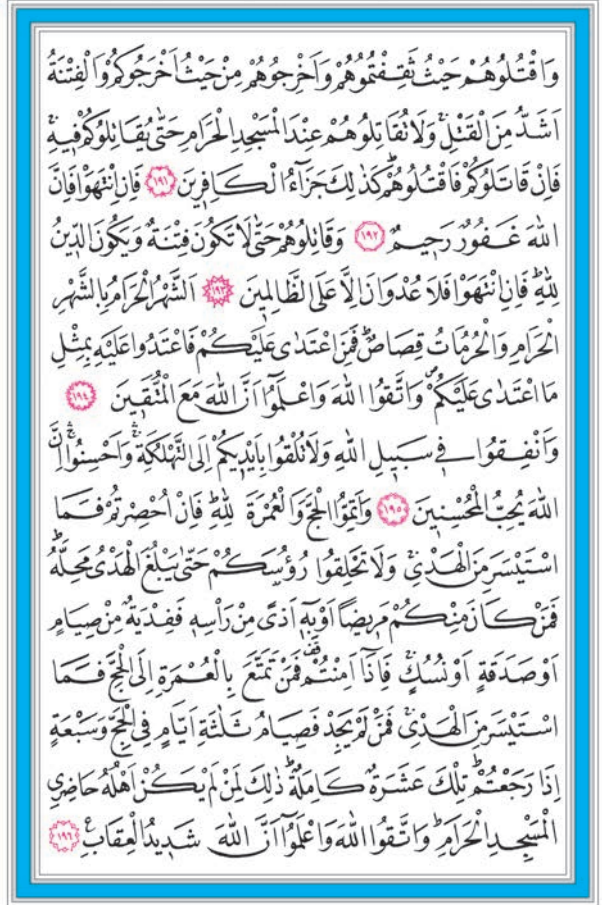 وَاقْتُلُوهُمْ حَيْثُ ثَقِفْتُمُوهُمْ وَاَخْرِجُوهُمْ مِنْ حَيْثُ اَخْرَجُوكُمْ وَالْفِتْنَةُ
اَشَدُّ مِنَ الْقَتْلِۚ وَلَا تُقَاتِلُوهُمْ عِنْدَ الْمَسْجِدِ الْحَرَامِ حَتّٰى يُقَاتِلُوكُمْ ف۪يهِۚ
فَاِنْ قَاتَلُوكُمْ فَاقْتُلُوهُمْۜ كَذٰلِكَ جَزَٓاءُ الْكَافِر۪ينَ ﴿١٩١﴾ فَاِنِ انْتَهَوْا فَاِنَّ
اللّٰهَ غَفُورٌ رَح۪يمٌ ﴿١٩٢﴾ وَقَاتِلُوهُمْ حَتّٰى لَا تَكُونَ فِتْنَةٌ وَيَكُونَ الدّ۪ينُ
لِلّٰهِۜ فَاِنِ انْتَهَوْا فَلَا عُدْوَانَ اِلَّا عَلَى الظَّالِم۪ينَ ﴿١٩٣﴾ اَلشَّهْرُ الْحَرَامُ بِالشَّهْرِ
الْحَرَامِ وَالْحُرُمَاتُ قِصَاصٌۜ فَمَنِ اعْتَدٰى عَلَيْكُمْ فَاعْتَدُوا عَلَيْهِ بِمِثْلِ
مَا اعْتَدٰى عَلَيْكُمْۖ وَاتَّقُوا اللّٰهَ وَاعْلَمُٓوا اَنَّ اللّٰهَ مَعَ الْمُتَّق۪ينَ ﴿١٩٤﴾
وَاَنْفِقُوا ف۪ي سَب۪يلِ اللّٰهِ وَلَا تُلْقُوا بِاَيْد۪يكُمْ اِلَى التَّهْلُكَةِۚۛ وَاَحْسِنُواۚۛ اِنَّ
اللّٰهَ يُحِبُّ الْمُحْسِن۪ينَ ﴿١٩٥﴾ وَاَتِمُّوا الْحَجَّ وَالْعُمْرَةَ لِلّٰهِۜ فَاِنْ اُحْصِرْتُمْ فَمَا
اسْتَيْسَرَ مِنَ الْهَدْيِۚ وَلَا تَحْلِقُوا رُؤُ۫سَكُمْ حَتّٰى يَبْلُغَ الْهَدْيُ مَحِلَّهُۜ
فَمَنْ كَانَ مِنْكُمْ مَر۪يضاً اَوْ بِه۪ٓ اَذًى مِنْ رَأْسِه۪ فَفِدْيَةٌ مِنْ صِيَامٍ
اَوْ صَدَقَةٍ اَوْ نُسُكٍۚ فَاِذَٓا اَمِنْتُمْ۠ فَمَنْ تَمَتَّعَ بِالْعُمْرَةِ اِلَى الْحَجِّ فَمَا
اسْتَيْسَرَ مِنَ الْهَدْيِۚ فَمَنْ لَمْ يَجِدْ فَصِيَامُ ثَلٰثَةِ اَيَّامٍ فِي الْحَجِّ وَسَبْعَةٍ
اِذَا رَجَعْتُمْۜ تِلْكَ عَشَرَةٌ كَامِلَةٌۜ ذٰلِكَ لِمَنْ لَمْ يَكُنْ اَهْلُهُ حَاضِرِي
الْمَسْجِدِ الْحَرَامِۜ وَاتَّقُوا اللّٰهَ وَاعْلَمُٓوا اَنَّ اللّٰهَ شَد۪يدُ الْعِقَابِ۟ ﴿١٩٦﴾